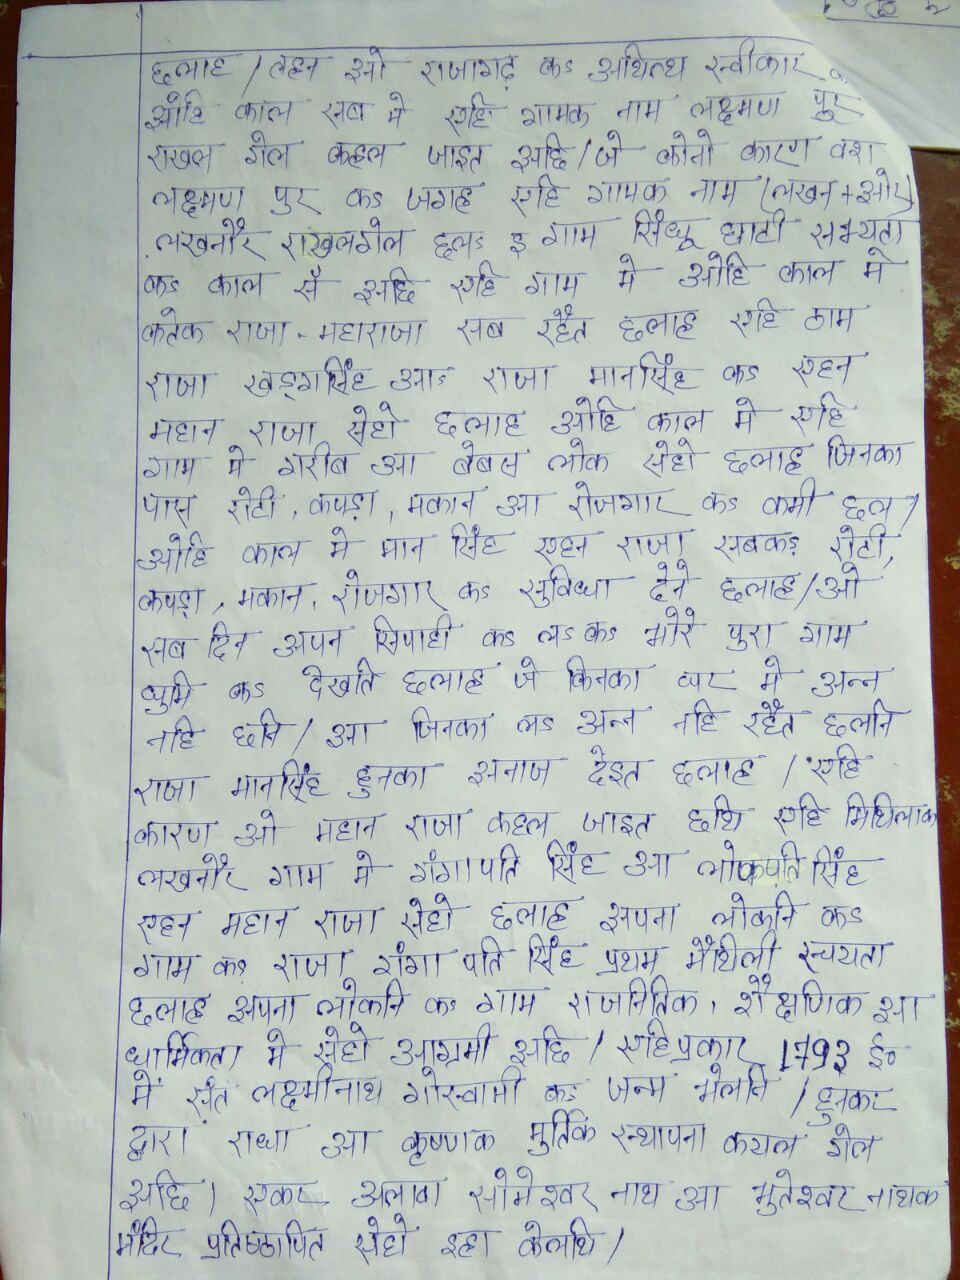 छलाह / लहन ओ राजागढ़ कऽ अधित्थ स्वीकार
ओहि काल सब मे एहि गामक नाम लक्ष्मण पुर
राखल गेल कहल जाइत अछि / जे कोनो कारण वश
लक्ष्मण पुर कऽ जगह एहि गामक नाम (लखन+ओर)
लखनौर राखलगेल छलऽ इ गाम सिंधू घाटी सभ्यता
कऽ काल सँ अछि एहि गाम मे ओहि काल मे
कतेक राजा - महाराजा सब रहैत छलाह एहि ठाम
राजा खड़्गसिंह आऽ राजा मानसिंह कऽ एहन
महान राजा सेहो छलाह ओहि काल मे एहि
गाम मे गरीब आ बेबस लोक सेहो छलाह जिनका
पास रोटी, कपड़ा, मकान आ रोजगार कऽ कमी छल /
ओहि काल मे मान सिंह एहन राजा सबकऽ रोटी,
कपड़ा, मकान, रोजगार कऽ सुविधा देने छलाह / ओ
सब दिन अपन सिपाही कऽ लऽ कऽ भोरे पुरा गाम
घुमि कऽ देखति छलाह जे किनका घर मे अन्न
नहि छनि / आ जिनका लऽ अन्न नहि रहैत छलनि
राजा मानसिंह हुनका अनाज देइत छलाह / एहि
कारण ओ महान राजा कहल जाइत छथि एहि मिथिलाक
लखनौर गाम मे गंगापति सिंह आ लोकपति सिंह
एहन महान राजा सेहो छलाह अपना लोकनि कऽ
गाम कऽ राजा गंगा पति सिंह प्रथम मैथिली रचयता
छलाह अपना लोकनि कऽ गाम राजनितिक, शैक्षणिक आ
धार्मिकता मे सेहो आग्रमी अछि / एहिप्रकार 1793 ई०
में संत लक्ष्मीनाथ गोस्वामी कऽ जन्म भेलनि / हुनकर
द्वारा राधा आ कृष्णक मुर्तिक स्थापना कयल गेल
अछि / एकर अलावा सोमेश्वर नाथ आ भुतेश्वर नाथक
मंदिर प्रतिष्ठापित सेहो इहा केलथि /